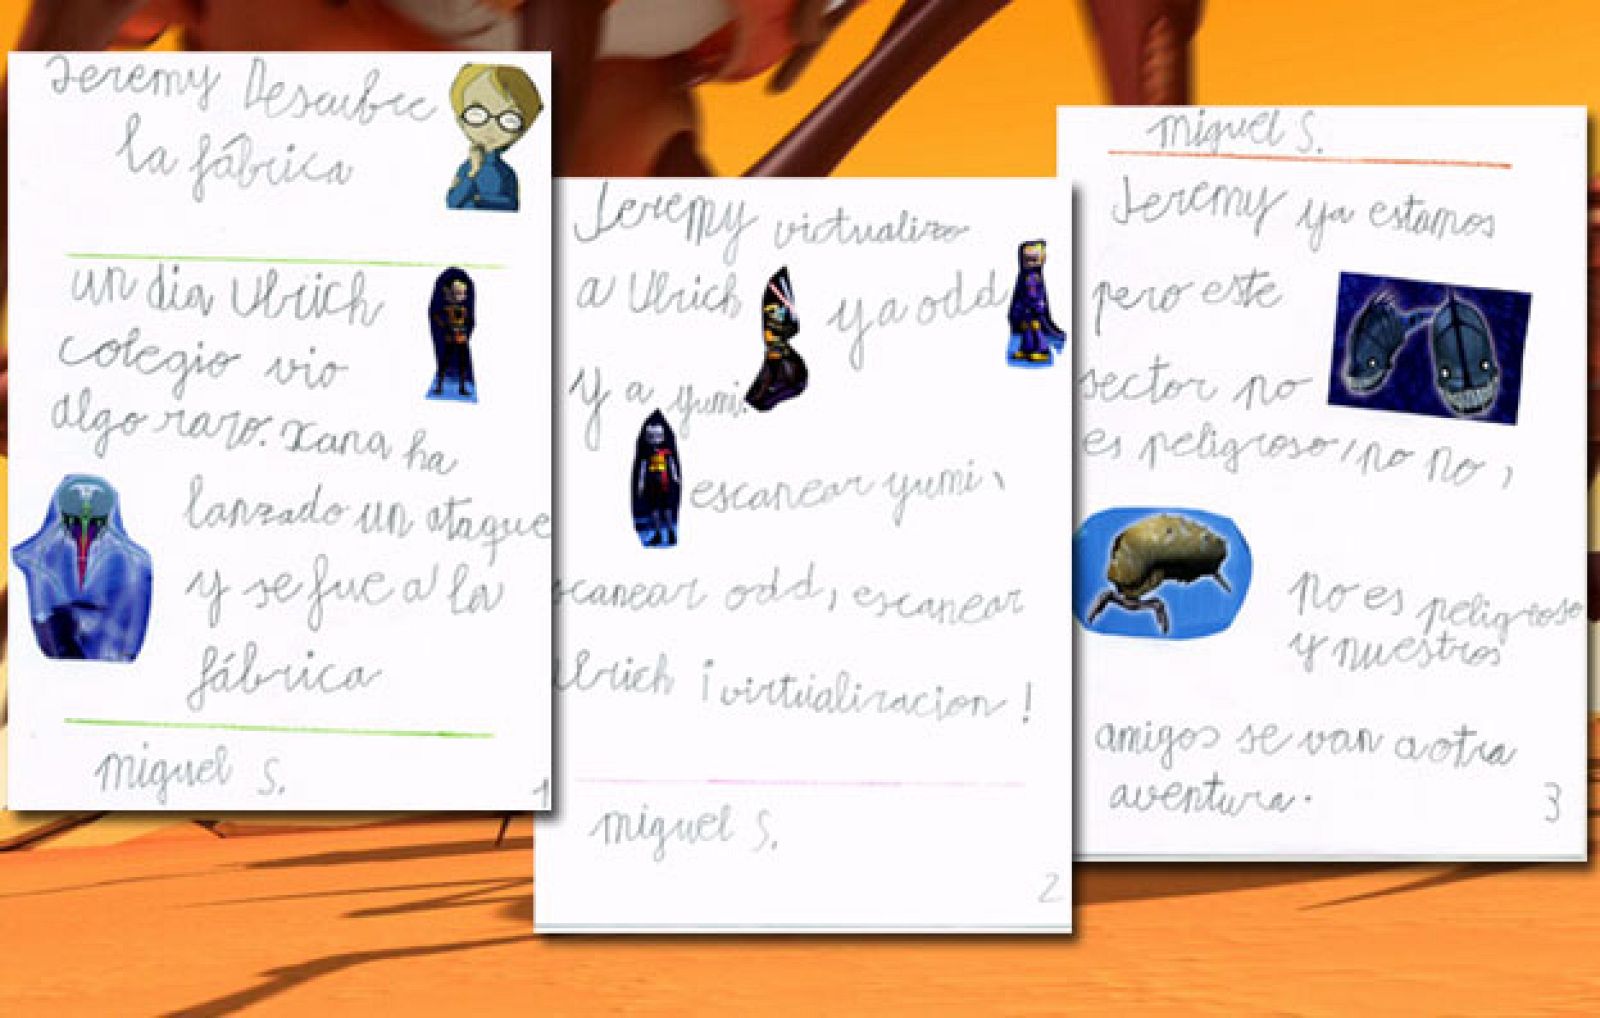 Jeremy Descubre
la fábrica
un dia Ulrich
colegio vio
algo raro. Xana ha
lanzado un ataque
y se fue a la
fábrica
Miguel S.
1
Jeremy virtualizo
a Ulrich y a odd
y a yumi.
escanear yumi,
scanear odd, escanear
Ulrich ¡virtualizacion!
Miguel S.
2
Miguel S.
Jeremy ya estamos
pero este
sector no
es peligroso, no no,
no es peligroso
y nuestros
amigos se van a otra
aventura.
3